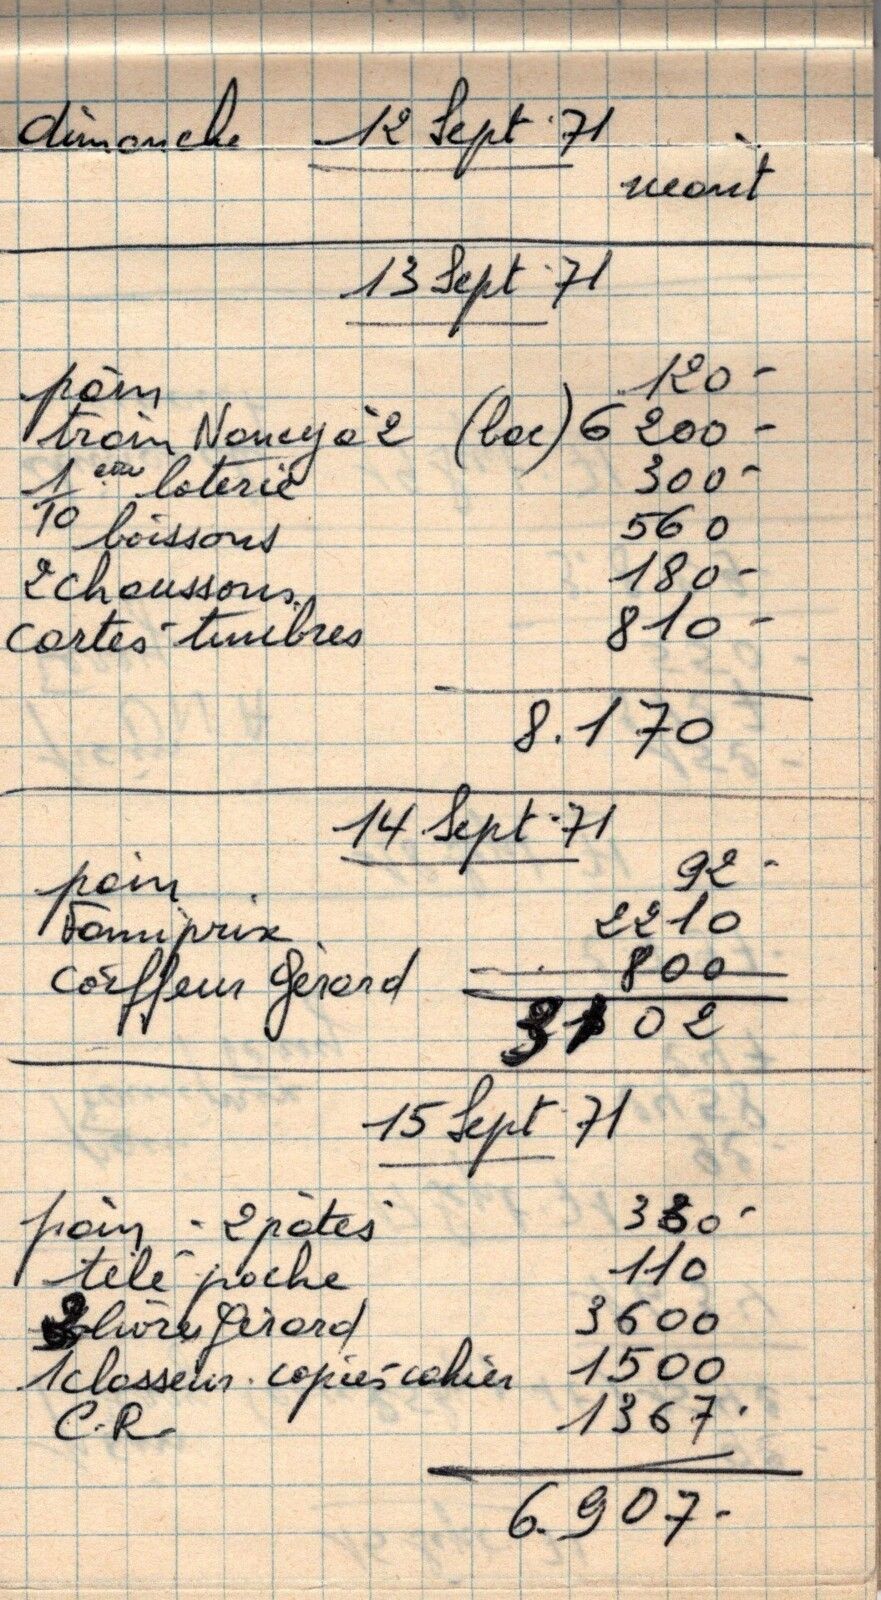 dimanche 12 Sept. 71
néant
13 Sept. 71
pain 120 -
train Nancy à 2 (bac) 6 200 -
1/10 ème loterie 300 -
boissons 560
2 chaussons. 180 -
cartes - timbres 810 -
8.170
14 Sept. 71
pain 92 -
Famiprix 2210
coiffeur Gérard 800
3102
15 Sept. 71
pain - 2 pâtés 330 -
télé poche 110
2 livres Gérard 3600
1 classeur. copies - cahier 1500
C.R. 1367.
6.907 -